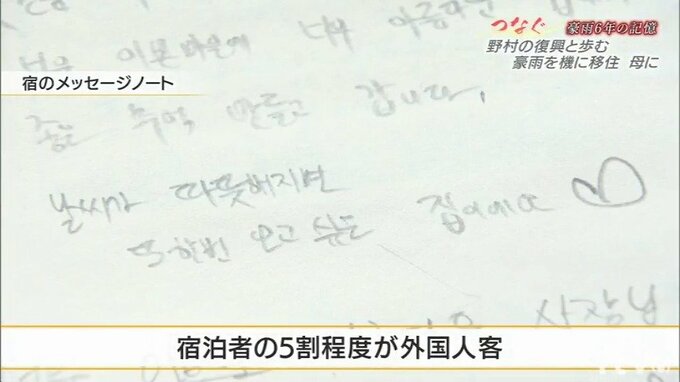 つなぐ 豪雨6年の記憶
野村の復興と歩む
豪雨を機に移住 母に
宿のメッセージノート
너무 아름다운
좋은 추억 만들고 갑니다.
날씨가 따뜻해지면
또 한번 오고 싶은 집이에요 ♡
사장님
宿泊者の5割程度が外国人客